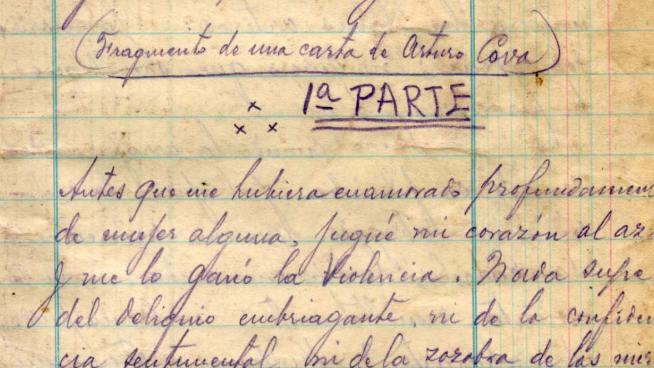 (Fragmento de una carta de Arturo Cova)
1ª PARTE
x
x x
Antes que me hubiera enamorado profundamen
de mujer alguna, jugué mi corazón al az
y me lo ganó la Violencia. Nada supe
del deliquio embriagante, ni de la confiden
cia sentimental, ni de la zozobra de las mir